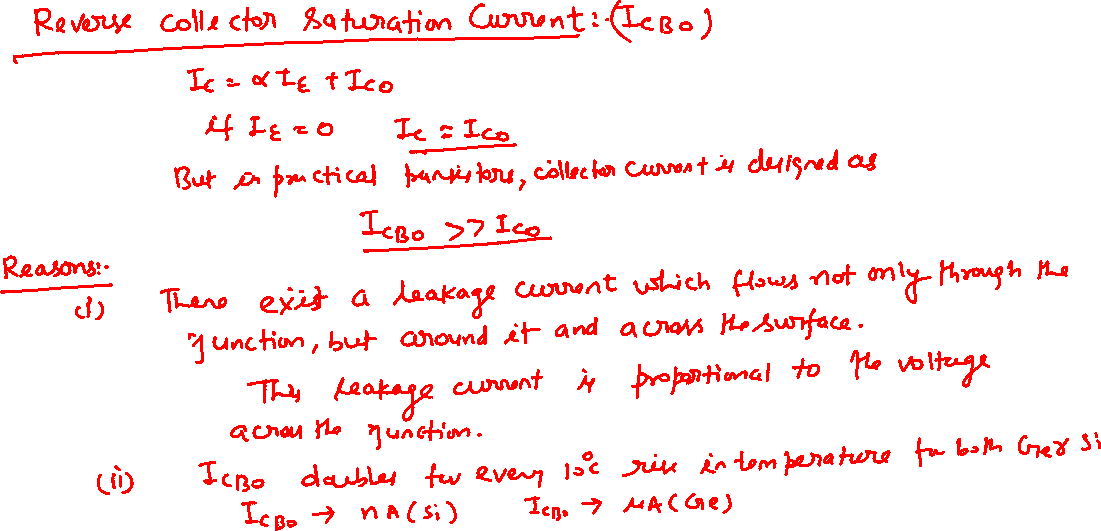 Reverse collector Saturation Current:- (ICBO)
IC = αIE + ICO
if IE = 0 IC = ICO
But in practical transistors, collector current is designed as
ICBO >> ICO
Reasons:-
(i) There exist a leakage current which flows not only through the
junction, but around it and across the surface.
This leakage current is proportional to the voltage
across the junction.
(ii) ICBO doubles for every 10°c rise in temperature for both Ge & Si
ICBO → nA (Si) ICBO → μA (Ge)